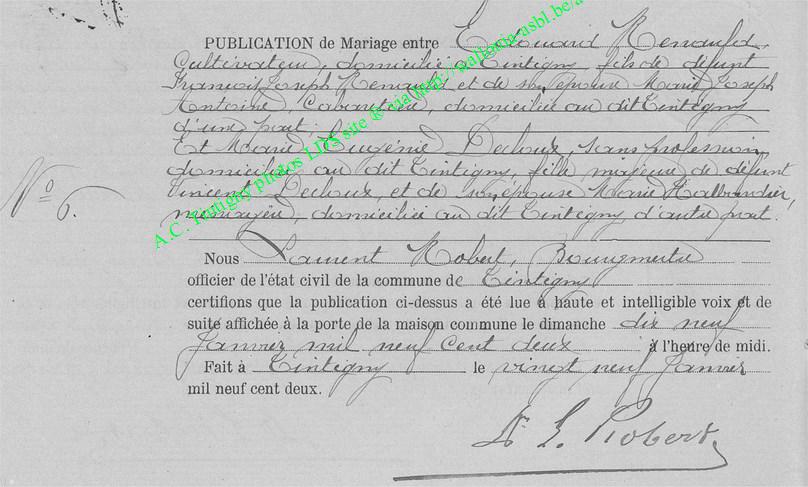 PUBLICATION de Mariage entre Edouard Renauld,
Cultivateur, domicilié à Tintigny, fils de défunt
François Joseph Renauld et de son épouse Marie Joseph
Antoine, Cabaretière, domiciliée au dit Tintigny
d'une part.
Et Marie Eugénie Decloux, sans profession,
domiciliée au dit Tintigny, fille majeure de défunt
Vincent Decloux, et de son épouse Marie
ménagère, domiciliée au dit Tintigny d'autre part.
No 6.
Nous Laurent Robert, Bourgmestre
officier de l'état civil de la commune de Tintigny
certifions que la publication ci-dessus a été lue à haute et intelligible voix et de
suite affichée à la porte de la maison commune le dimanche dix neuf
Janvier mil neuf cent deux à l'heure de midi.
Fait à Tintigny le vingt neuf Janvier
mil neuf cent deux.
Robert
A.C. Tintigny photos LDS site ® via http://wallonia-asbl.be/